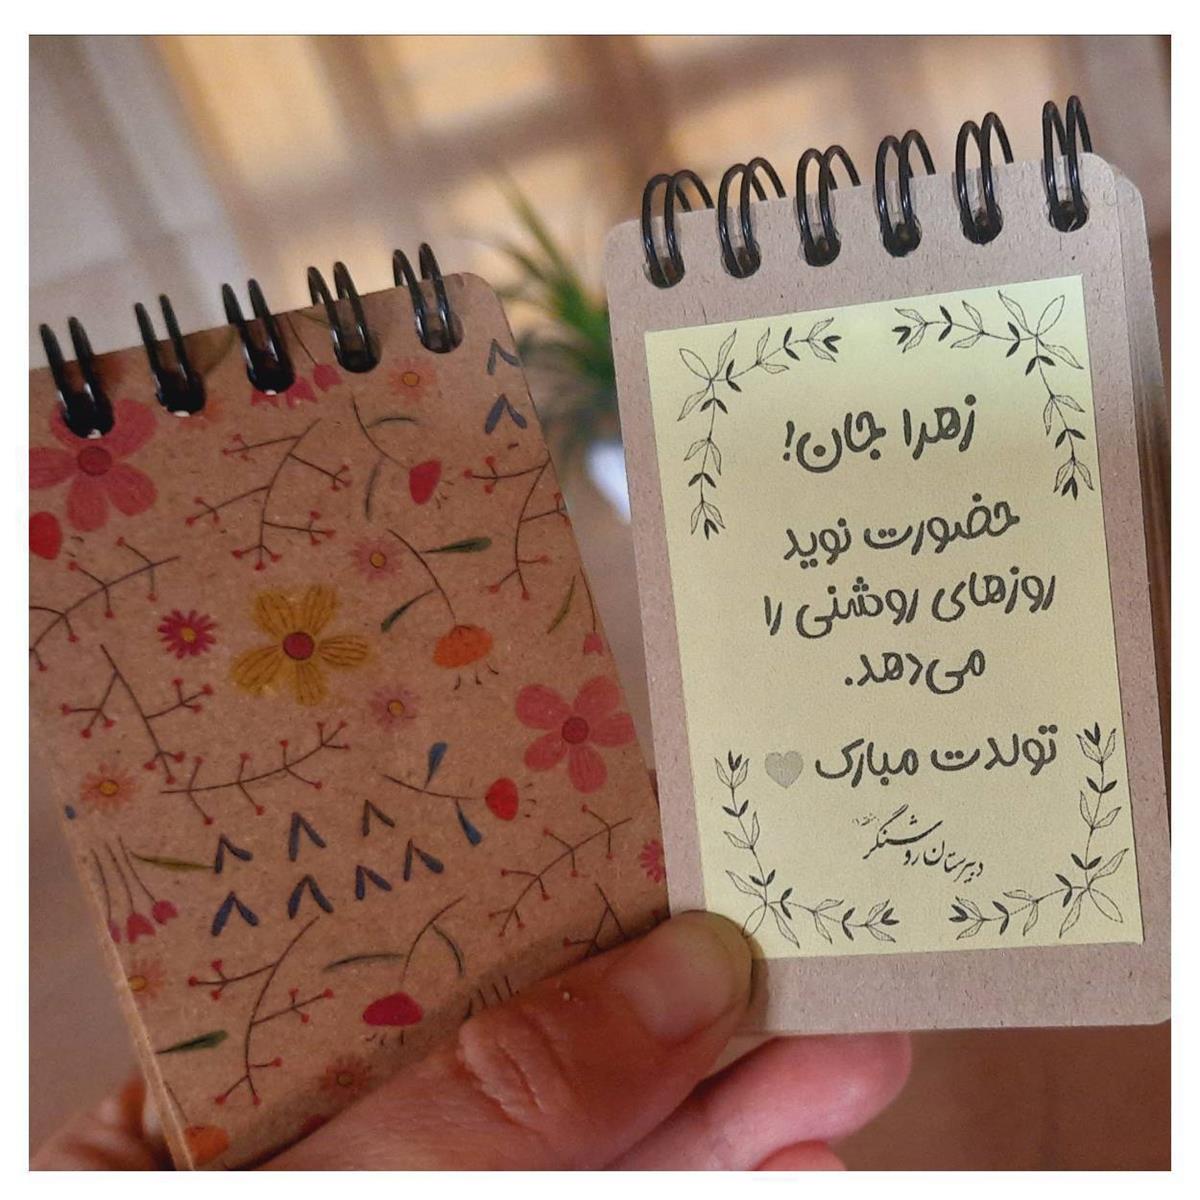 زهرا جان!
حضورت نوید
روزهای روشنی را
می‌دهد.
تولدت مبارک
دبیرستان روشنگر